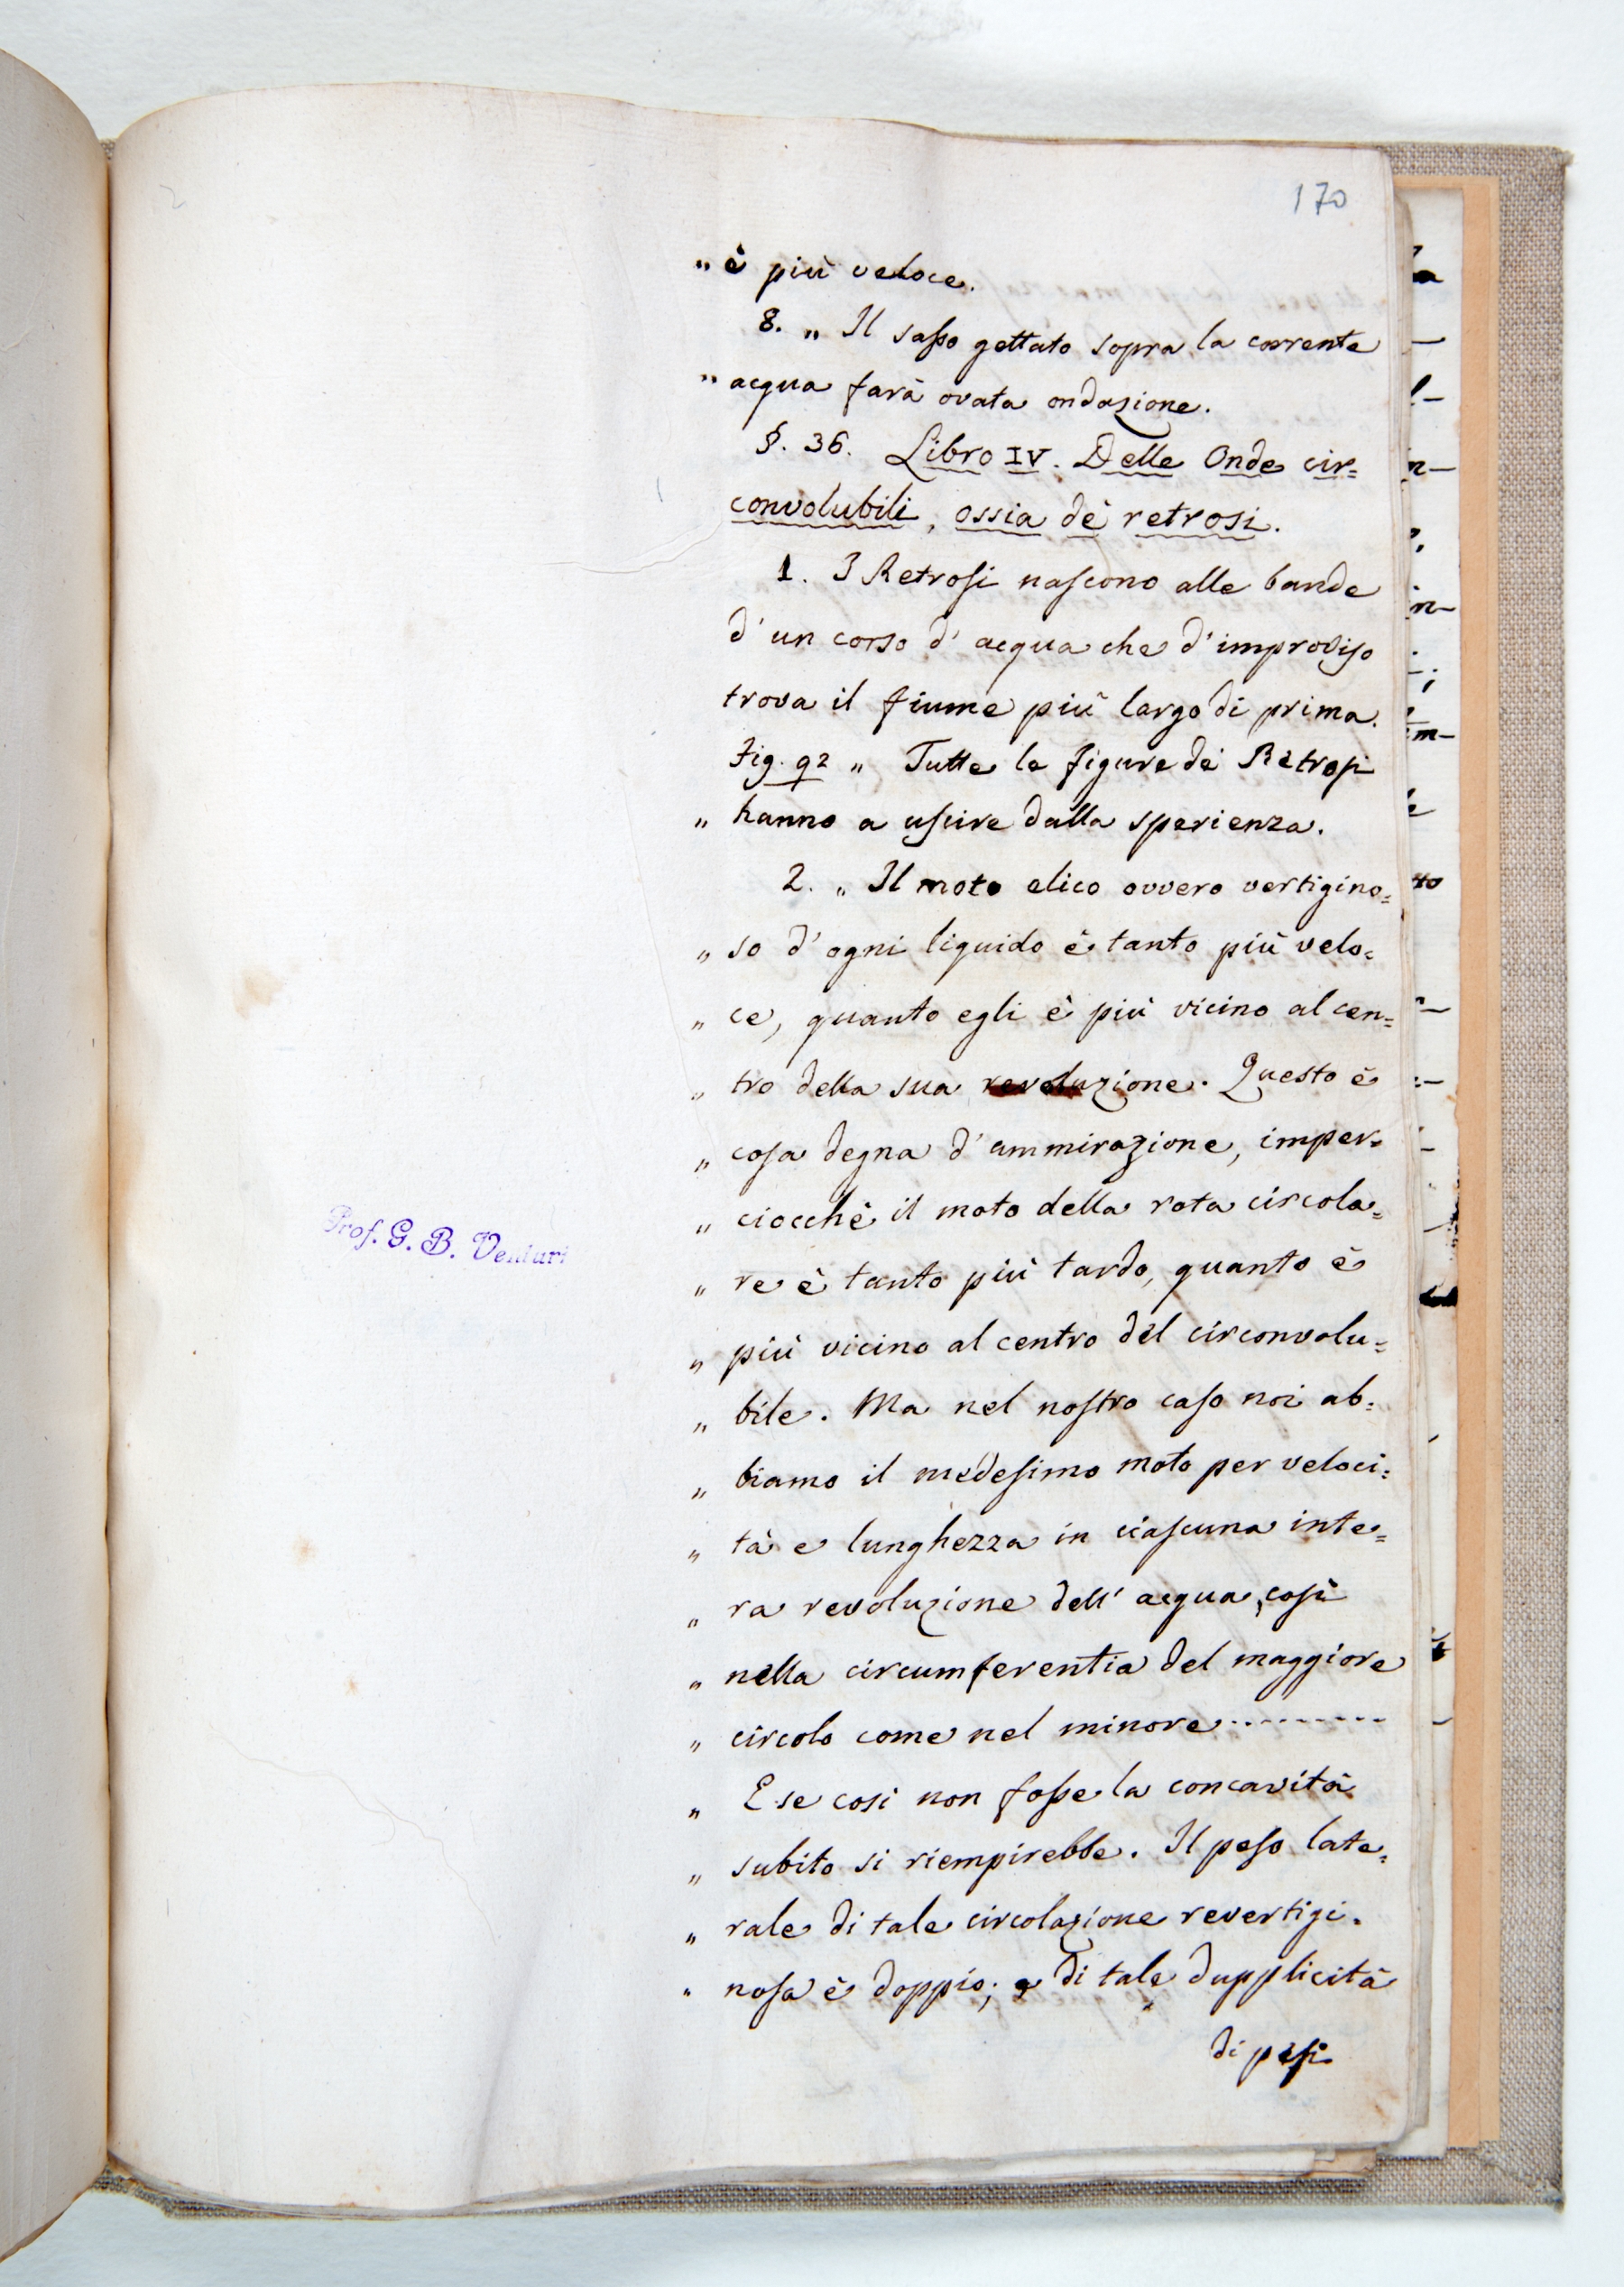 170
„ è più veloce.
8. „ Il sasso gettato sopra la corrente
„ acqua farà ovata ondazione.
§. 36. Libro IV. Delle Onde cir=
convolubili, ossia de' retrosi.
1. I Retrosi nascono alle bande
d' un corso d' acqua che d' improviso
trova il fiume più largo di prima.
Fig. 92 „ Tutte le figure de' Retrosi
„ hanno a uscire dalla sperienza.
2. „ Il moto elico ovvero vertigino=
„ so d' ogni liquido è tanto più velo=
„ ce, quanto egli è più vicino al cen=
„ tro della sua revoluzione. Questo è
„ cosa degna d' ammirazione, imper=
„ ciocchè il moto della rota circola=
„ re è tanto più tardo, quanto è
„ più vicino al centro del circonvolu=
„ bile. Ma nel nostro caso noi ab=
„ biamo il medesimo moto per veloci=
„ tà e lunghezza in ciascuna inte=
„ ra revoluzione dell' acqua, così
„ nella circumferentia del maggiore
„ circolo come nel minore .........
„ E se così non fosse la concavità
„ subito si riempirebbe. Il peso late=
„ rale di tale circolazione revertigi=
„ nosa è doppio; e di tale dupplicità
di pesi
Prof. G. B. Venturi